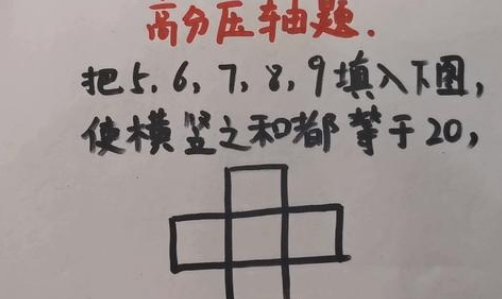 高分压轴题.
把5,6,7,8,9填入下图,
使横竖之和都等于20,